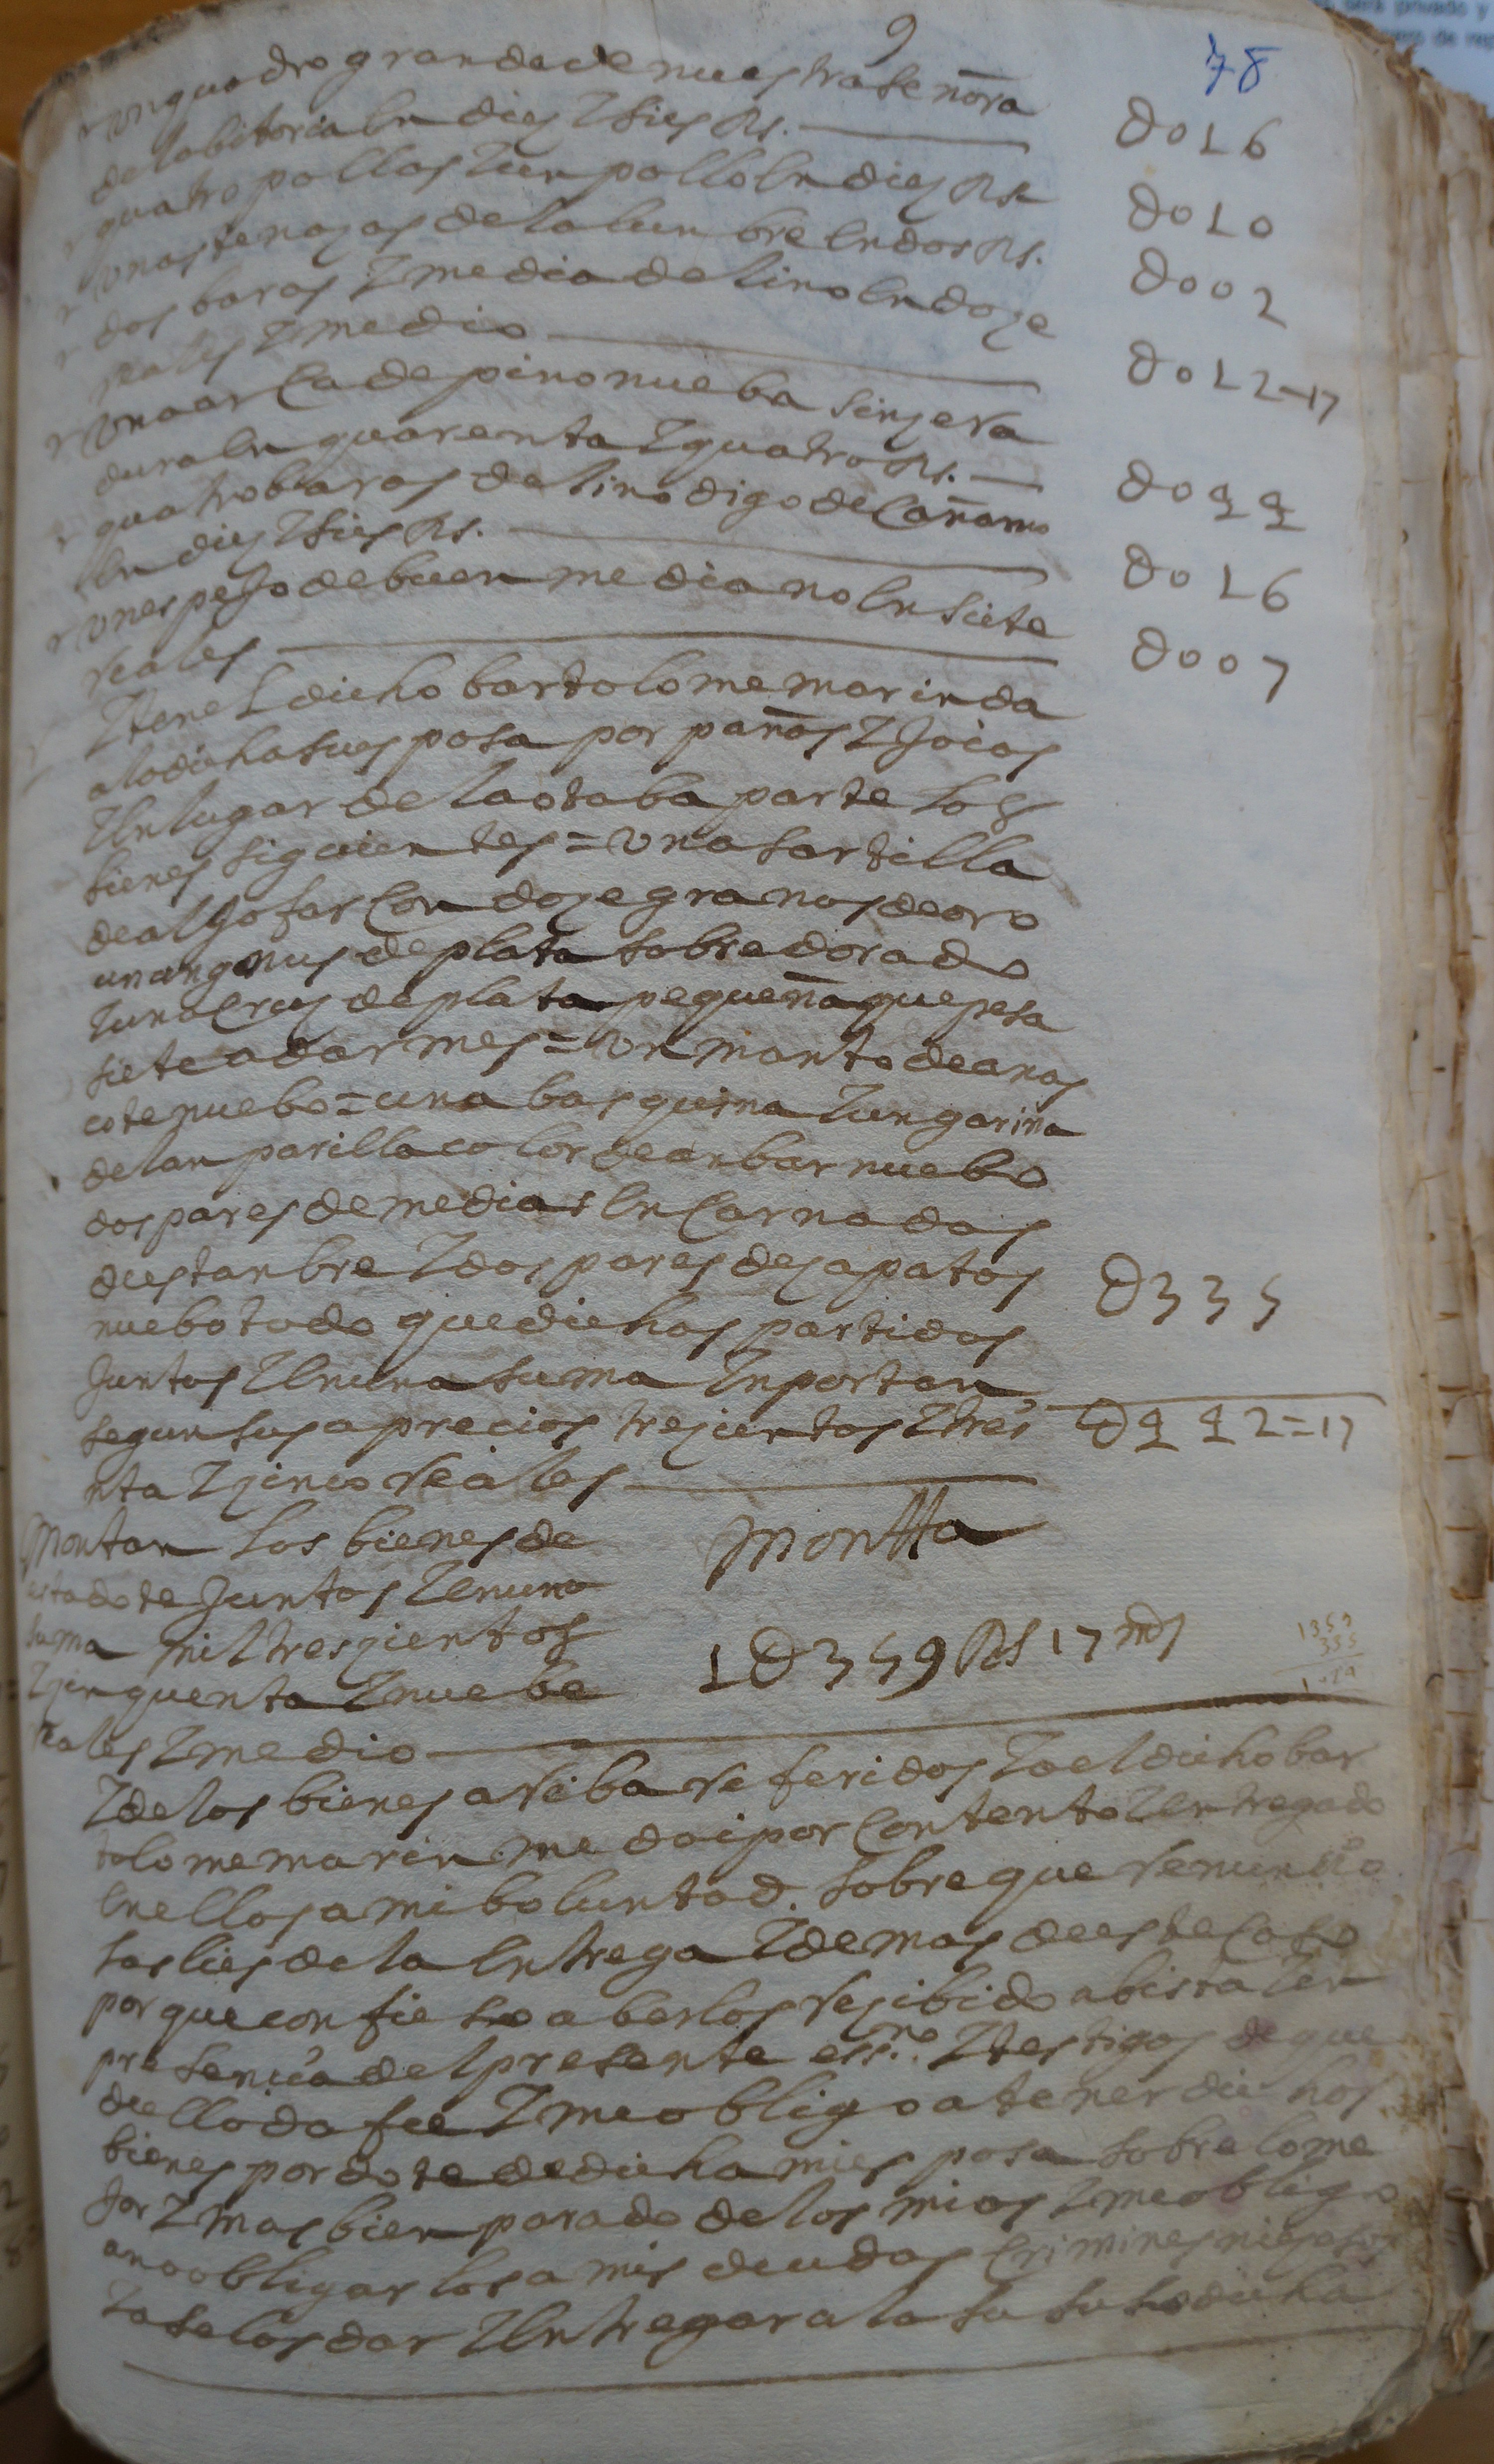 9
78
un quadro grande de nuestra señora
de la bitoria en dies I sies Rs. D016
quatro pollas I un pollo en dies Rs D010
unas tenajas de la lunbre en dos Rs. D002
dos baras I media de lino en doze
reales I medio D012=17
una arca de pino nueba sin zera
dura en quarenta I quatro Rs. D044
quatro baras de lino digo de cañamo
en dies I sies Rs. D016
un espejo de buen mediano en siete
reales D007
Iten el dicho bartolome marin da
a la dicha su esposa por paños I joias
I en lugar de la otaba parte los
bienes siguientes = una sartilla
de aljofar con doze granos de oro
un angnus de plata sobredorado
I una crus de plata pequeña que pesa
siete adarmes = un manto de anas
cote nuebo = una basquina I ungarina
de lanparilla color de anbar nuebo
dos pares de medias encarnadas
destanbre I dos pares de sapatos
nuebo todo que dichas partidas D335
juntas I en una suma Inportan
segun sus aprecios trezientos I trei D442=17
nta I zinco reales
Montan los bienes de
esta dote juntos I en una montta
suma mil trezientos
I zinquenta I nuebe 1D359 Rs 17 mds
reales I medio
1359
335
I de los bienes ariba referidos Io el dicho bar
tolome marin me doi por contento I entregado
en ellos a mi boluntad. sobre que renuncio
las lies de la entrega I demas de este caso
porque confieso aberlos resibido a bista I en
presencia del presente essno. I testigos de que
de ello da fee I me obligo a tener dichos
bienes por dote de dicha mi esposa sobre lo me
jor I mas bien parado de los mios I me obligo
a no obligarlos a mis deudas crimines ni esesos
I a se los dar I entregar a la susodicha